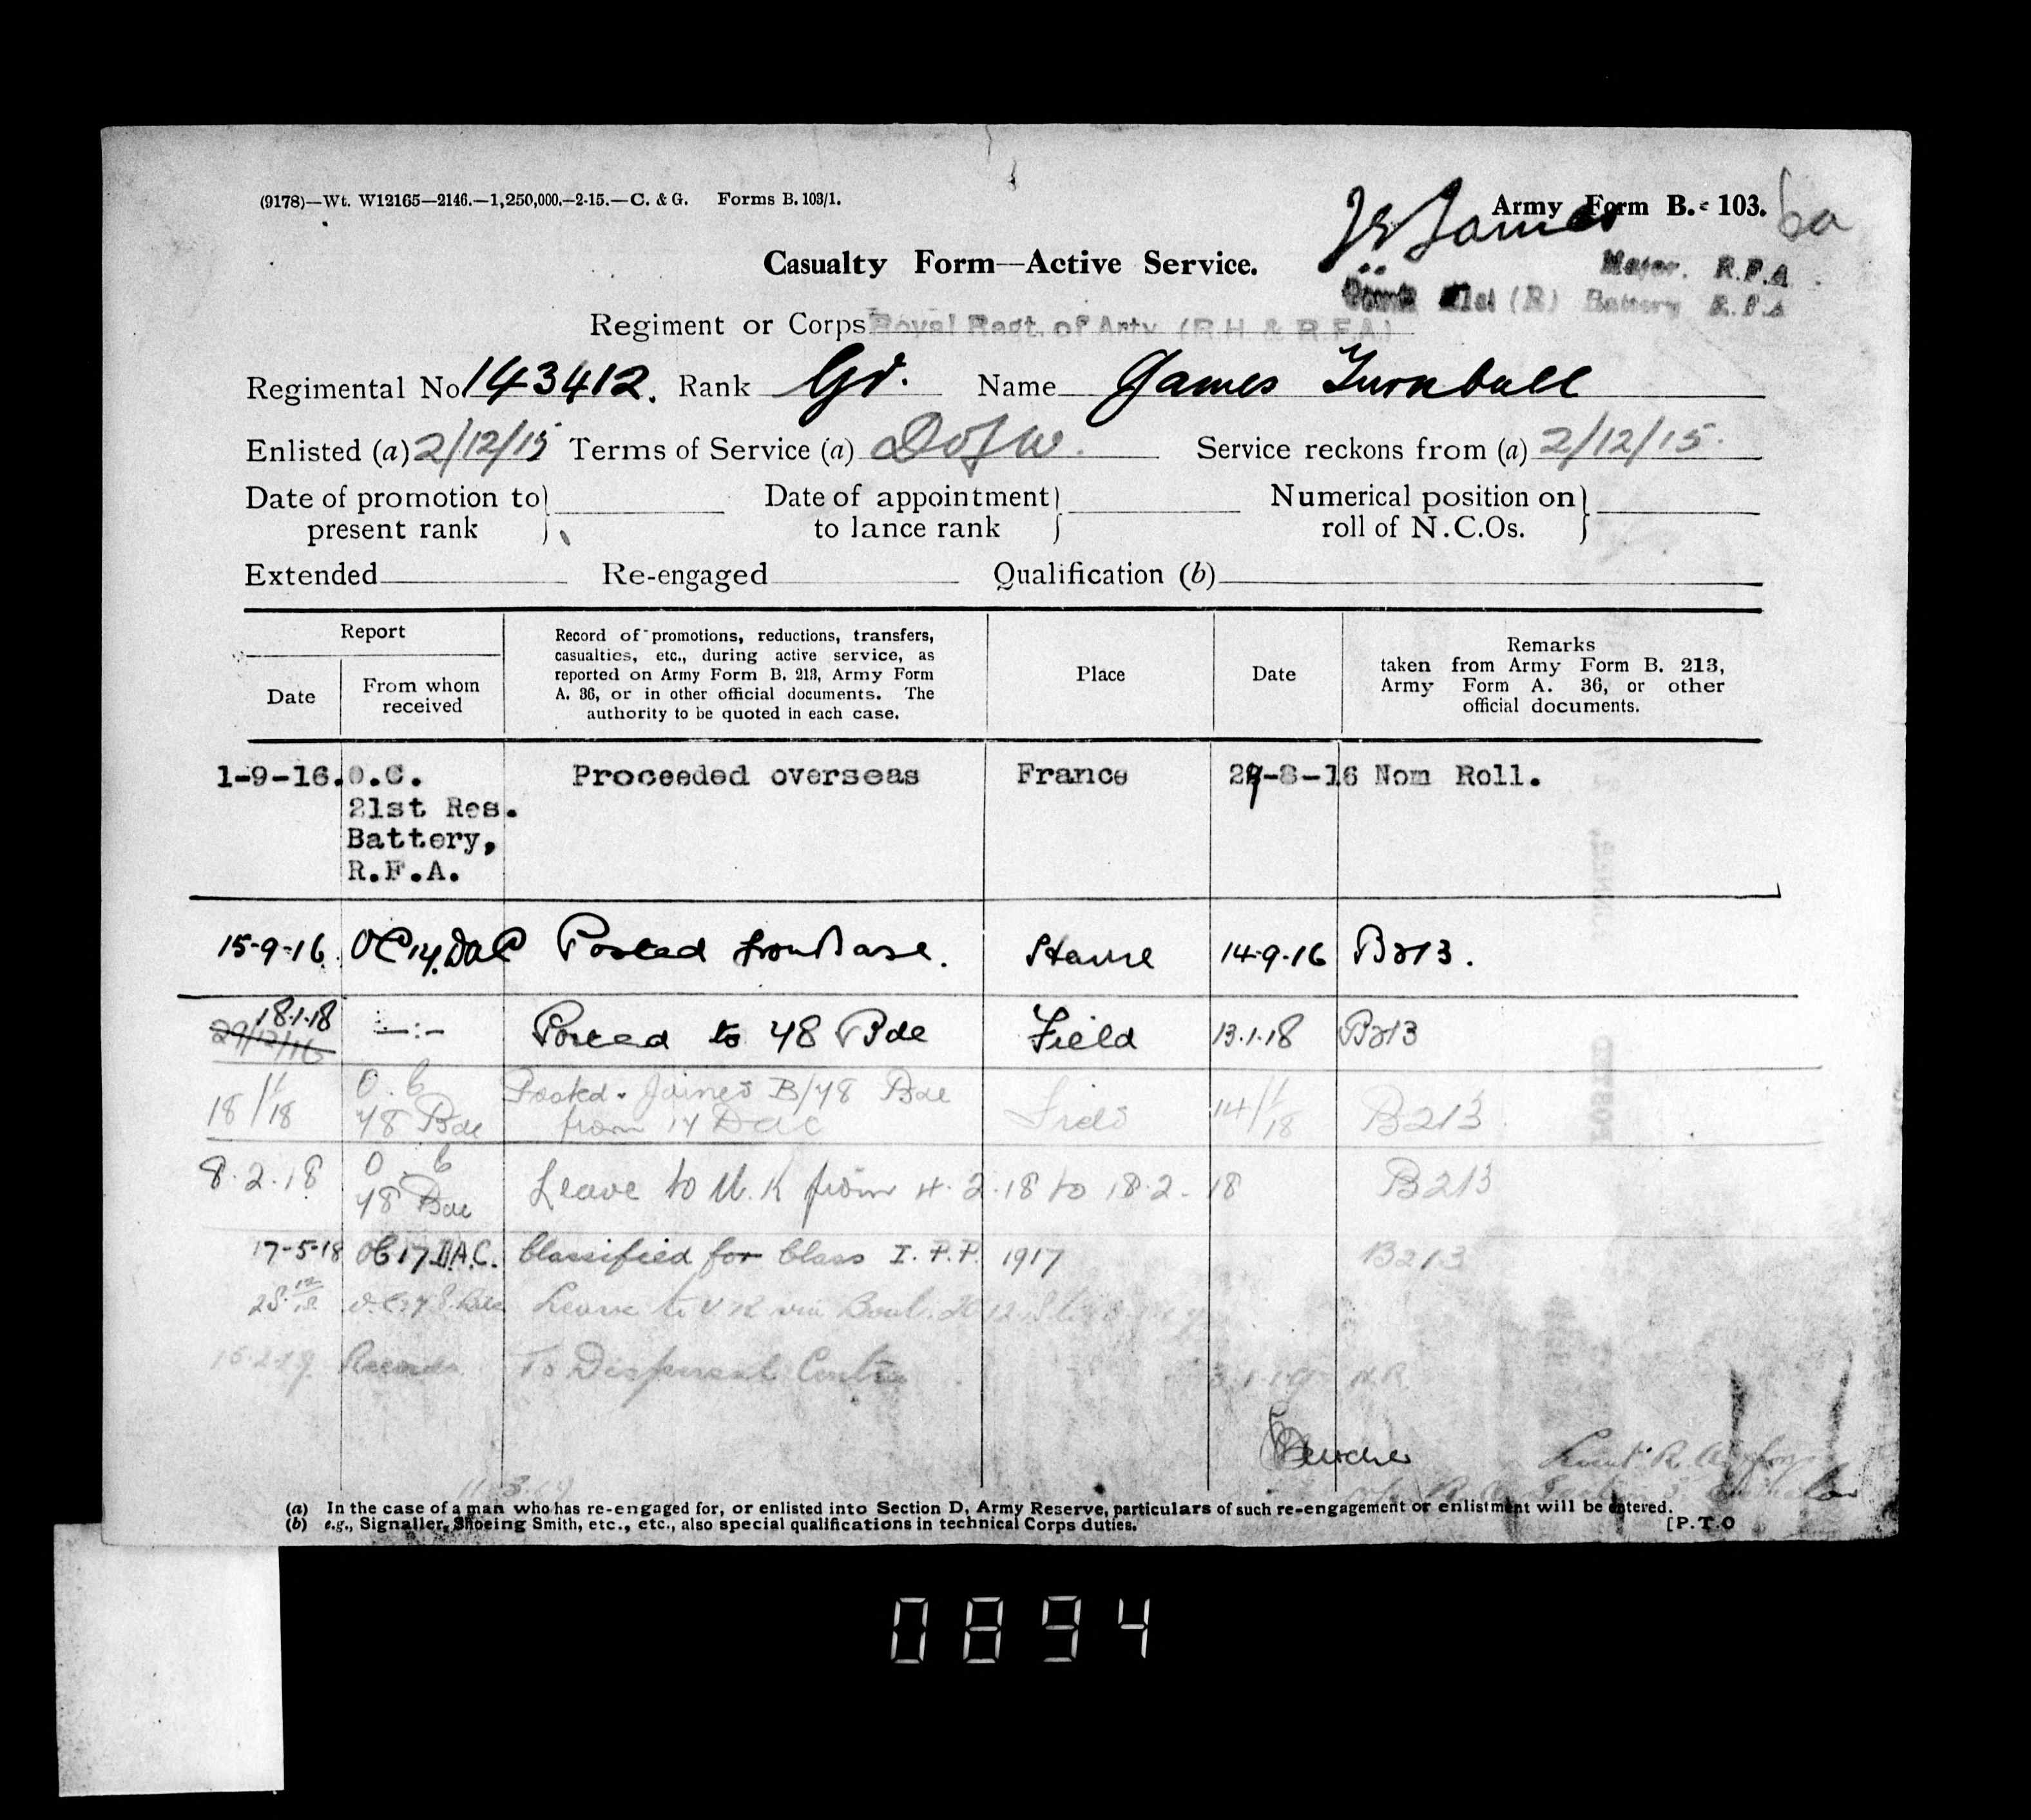 (9178)—Wt. W12165—2146.—1,250,000.—2-15.—C. & G. Forms B. 103/1.
Army Form B. 103.
James
Casualty Form—Active Service.
Major. R.F.A.
21st (R) Battery R.F.A
Regiment or Corps Royal Regt. of Arty (R.H. & R.F.A)
Regimental No 143412. Rank Gr. Name James Turnbull
Enlisted (a) 2/12/15 Terms of Service (a) DofW. Service reckons from (a) 2/12/15.
Date of promotion to present rank
Date of appointment to lance rank
Numerical position on roll of N.C.Os.
Extended Re-engaged Qualification (b)
Report
Date
From whom received
Record of promotions, reductions, transfers,
casualties, etc., during active service, as
reported on Army Form B. 213, Army Form
A. 36, or in other official documents. The
authority to be quoted in each case.
Place
Date
Remarks
taken from Army Form B. 213,
Army Form A. 36, or other
official documents.
1-9-16. O.C. Proceeded overseas France 29-8-16 Nom Roll.
21st Res.
Battery,
R.F.A.
15-9-16. OC 14. DAC Posted from Base. Havre 14-9-16 B213.
18.1.18
29/12/16 —:— Posted to 48 Bde Field 13.1.18 B213
18/1/18 O.C 48 Bde Posted. Joined B/48 Bde Field 14/1/18 B213
from 14 DAC
8.2.18 O.C 48 Bde Leave to U.K from 4.2.18 to 18.2.18 B213
17-5-18 OC 17 D.A.C. Classified for Class I. P.P. 1917 B213
28.12.18 Leave to U.K via
Records To Dispersal Centre
(a) In the case of a man who has re-engaged for, or enlisted into Section D, Army Reserve, particulars of such re-engagement or enlistment will be entered.
(b) e.g., Signaller, Shoeing Smith, etc., etc., also special qualifications in technical Corps duties.
[P.T.O
0894